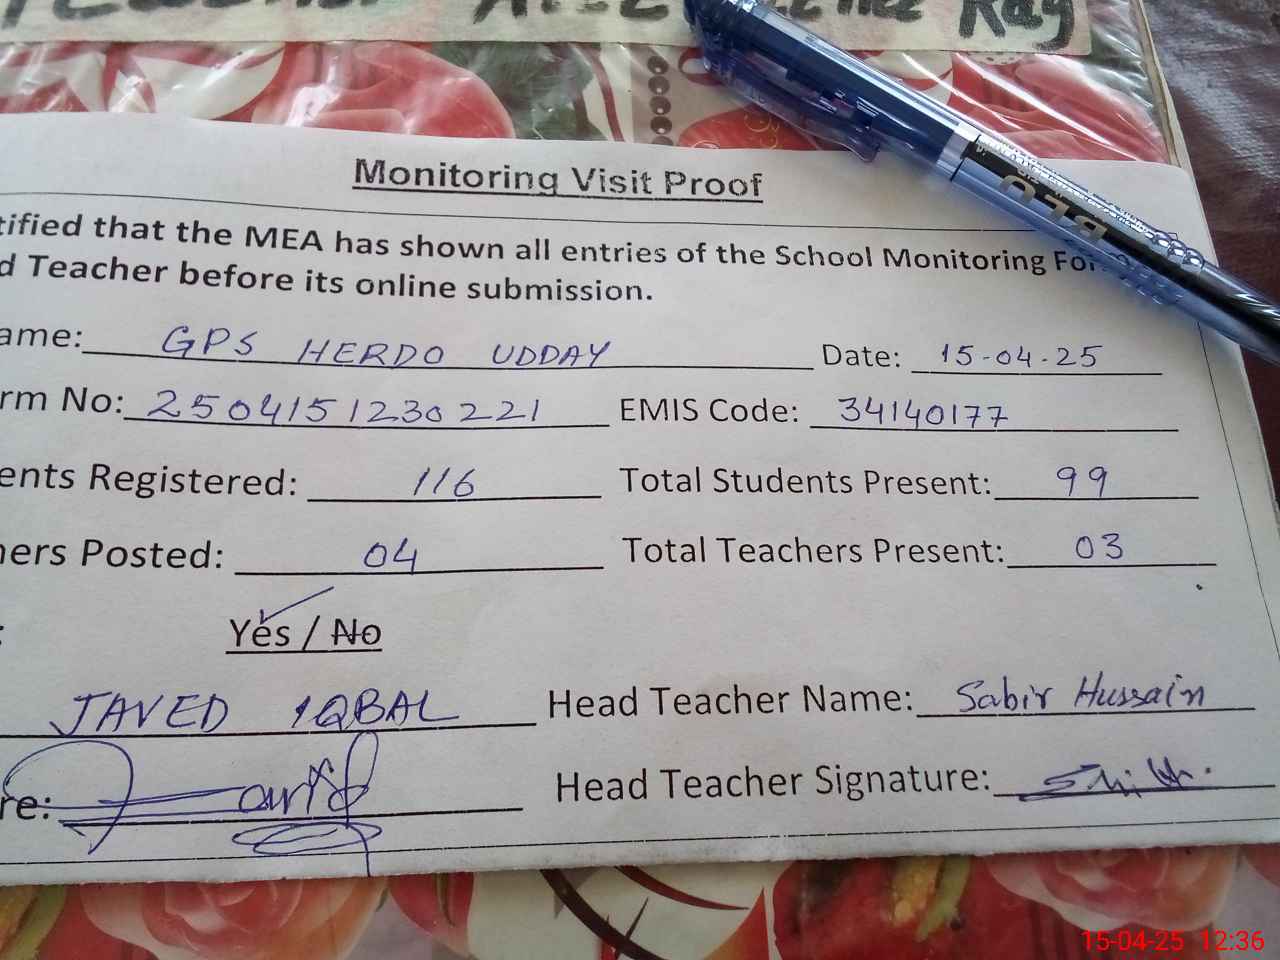 Ray
Monitoring Visit Proof
tified that the MEA has shown all entries of the School Monitoring Form
d Teacher before its online submission.
ame: GPS HERDO UDDAY Date: 15-04-25
rm No: 2504151230221 EMIS Code: 34140177
ents Registered: 116 Total Students Present: 99
hers Posted: 04 Total Teachers Present: 03
: Yes / No
JAVED IQBAL Head Teacher Name: Sabir Hussain
re: Head Teacher Signature:
15-04-25 12:36